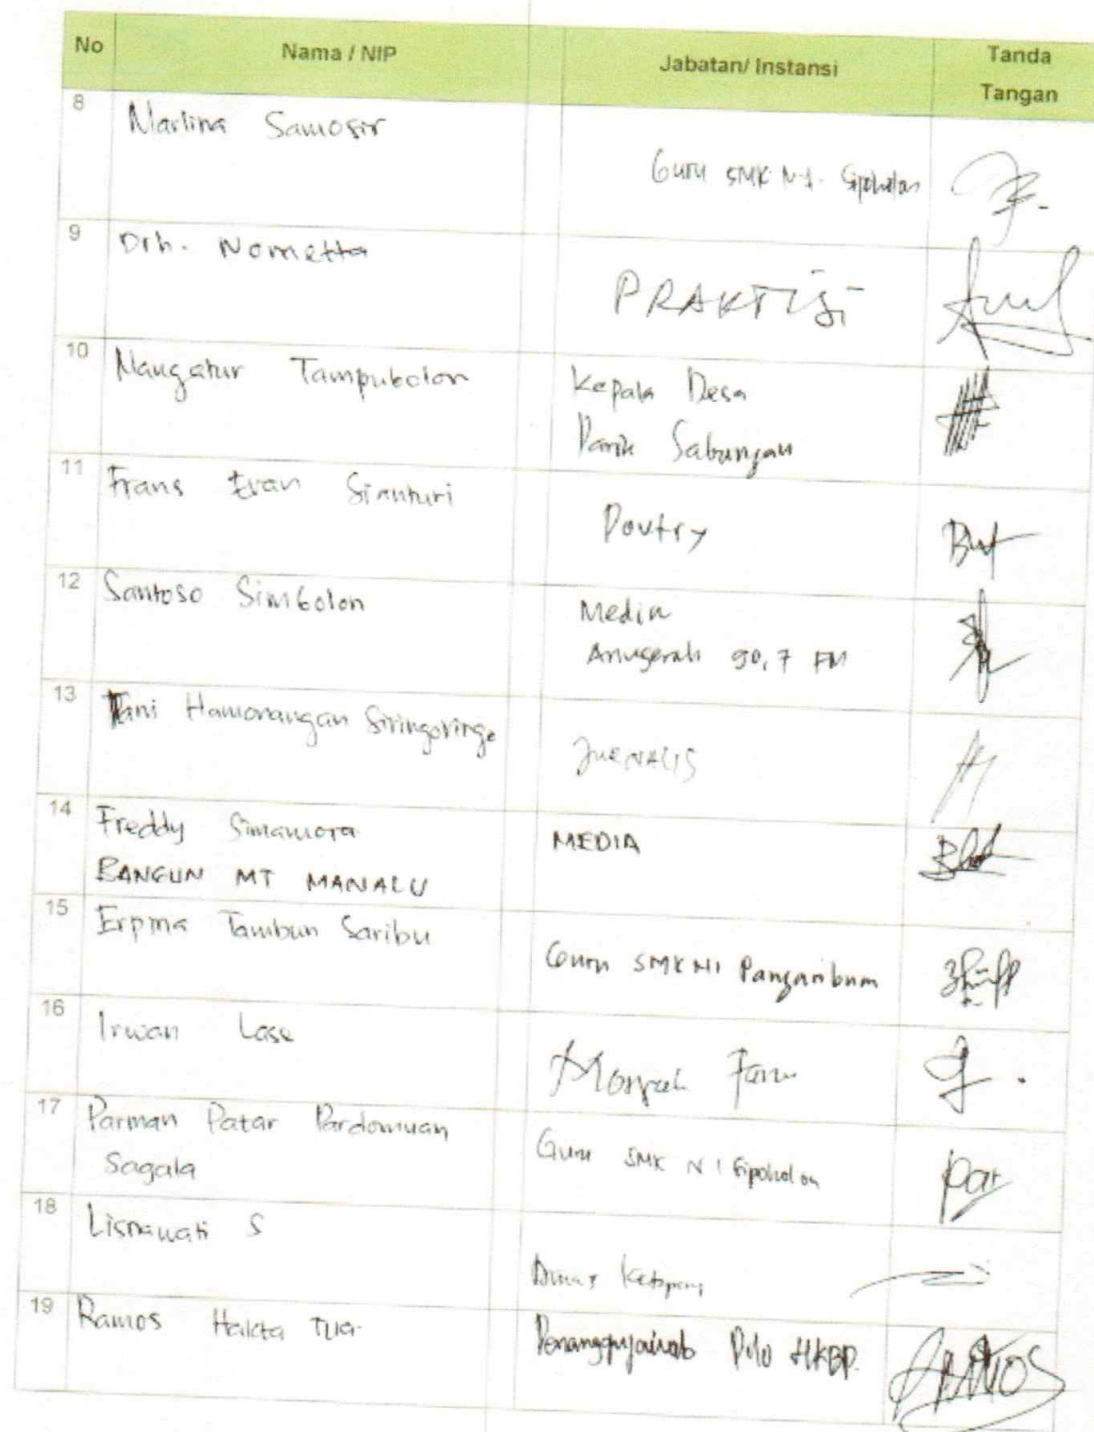 No Nama / NIP Jabatan/ Instansi Tanda
Tangan
8 Marlina Samosir
Guru SMK N 1. Sipoholon
9 Drh. Nometta
PRAKTISI
10 Mangatur Tampubolon Kepala Desa
Parik Sabungan
11 Frans Evan Sianturi
Poutry
12 Santoso Simbolon Media
Anugerah 90,7 FM
13 Tani Hamonangan Siringoringo
JURNALIS
14 Freddy Simamora MEDIA
BANGUN MT MANALU
15 Erpina Tambun Saribu
Guru SMK N1 Pangaribuan
16 Irwan Lase
Farm
17 Parman Patar Pardomuan Guru SMK N 1 Sipoholon
Sagala Par
18 Lisnawati S
Dinas Ketapang
19 Ramos Tua Penanggujawab HKBP.
RAMOS